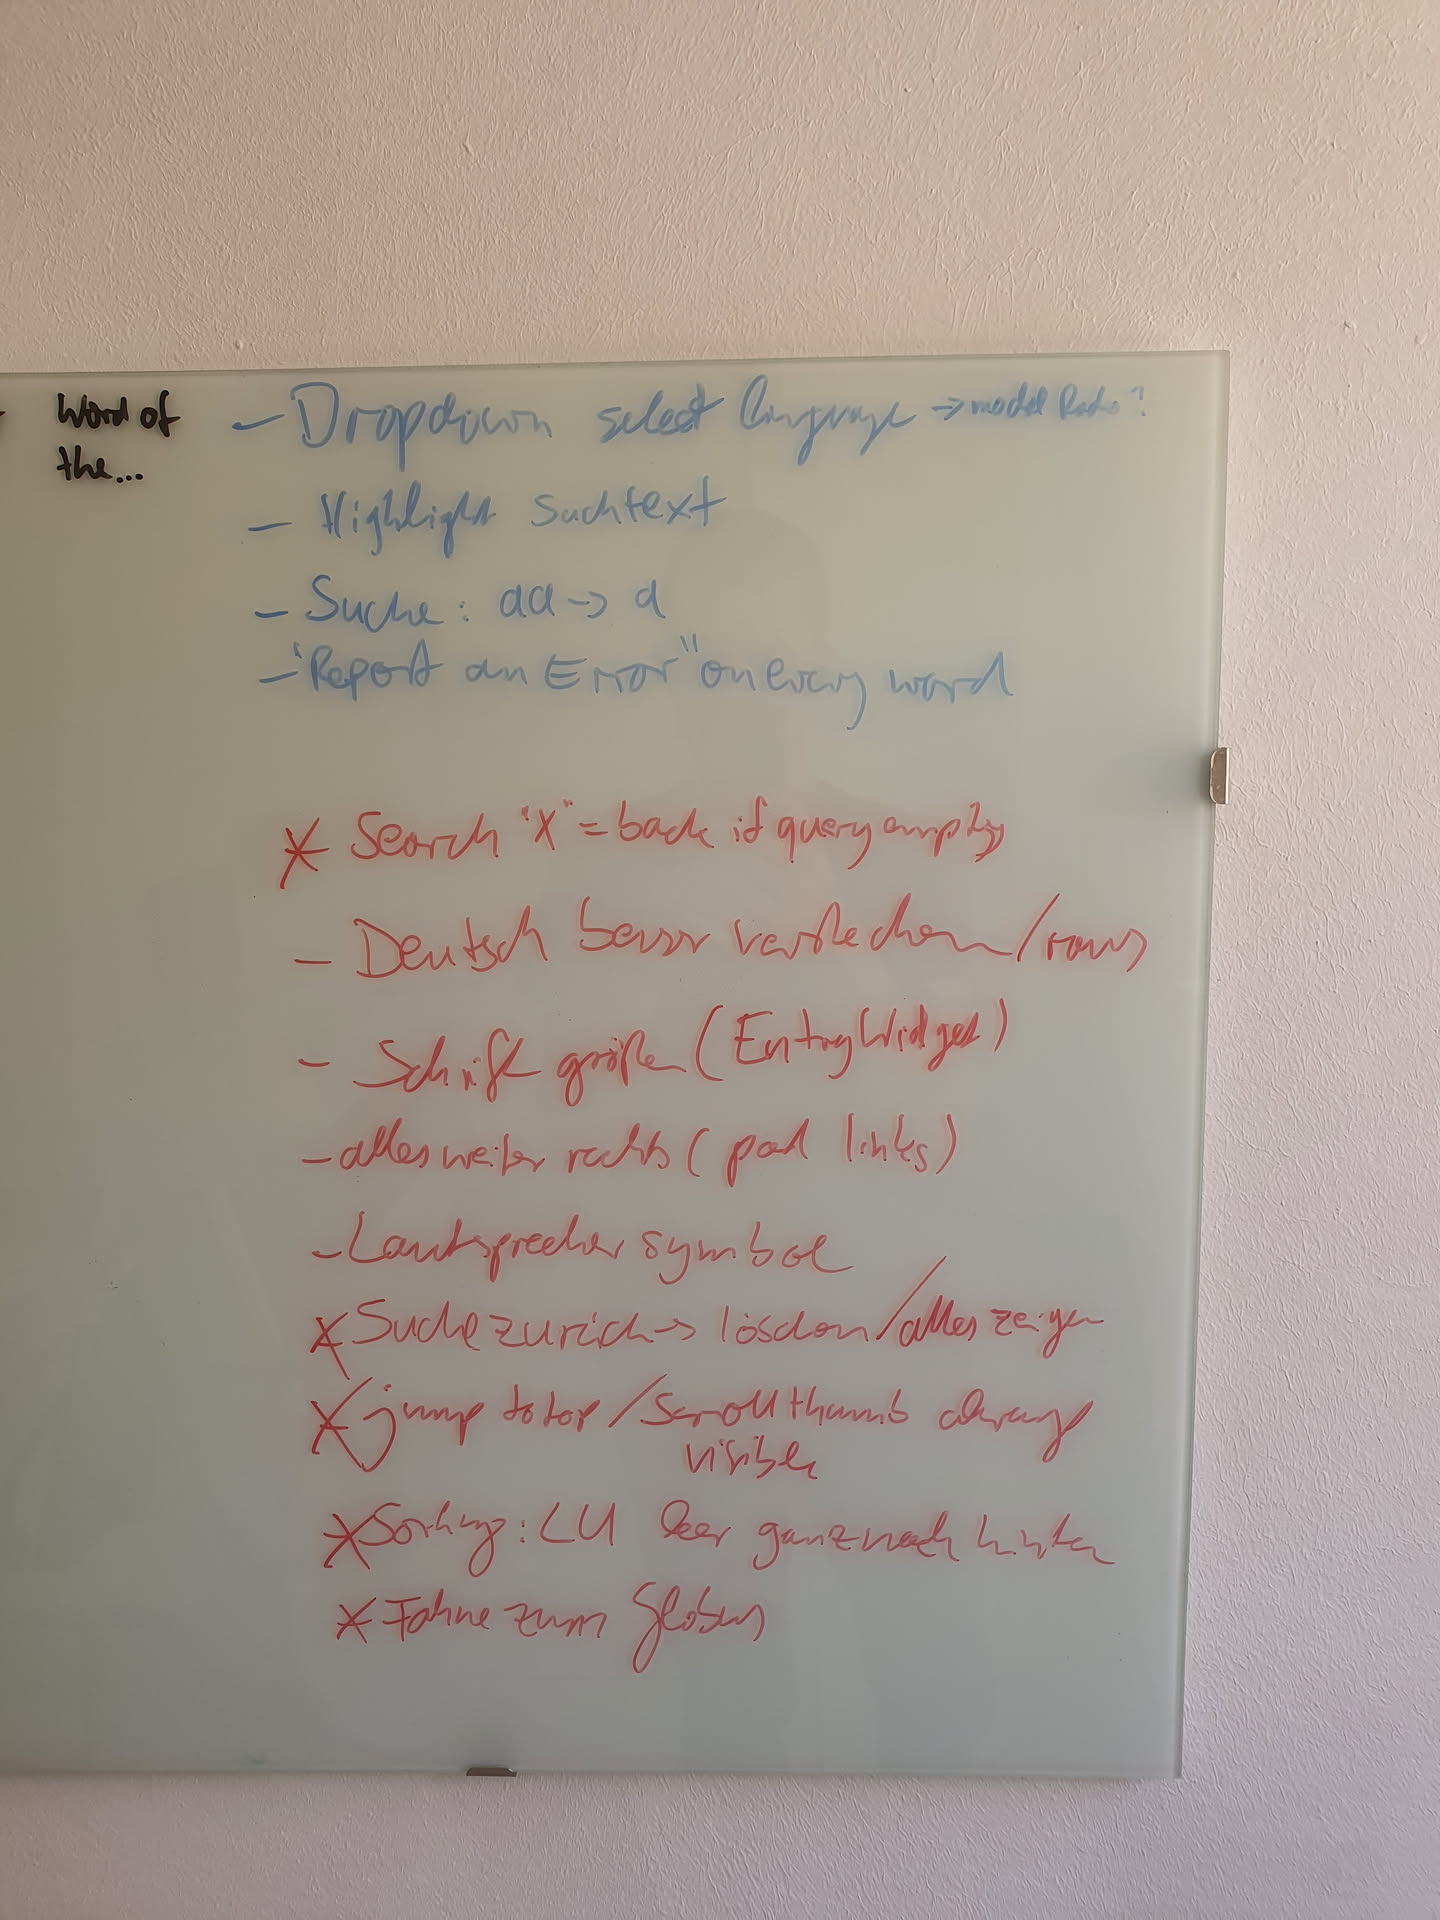 Word of
the...
- Dropdown select language → modal Radio?
- Highlight Suchtext
- Suche: aa → a
- "Report an Error" on every word
* Search "X" = back if query empty
- Deutsch besser verstecken/raus
- Schrift größer (EntryWidget)
- alles weiter rechts (pad links)
- Lautsprecher symbol
* Suche zurück → löschen/alles zeigen
* jump to top/Scroll thumb always
visible
* Sortierung: LU leer ganz nach hinten
* Fahne zum Globus